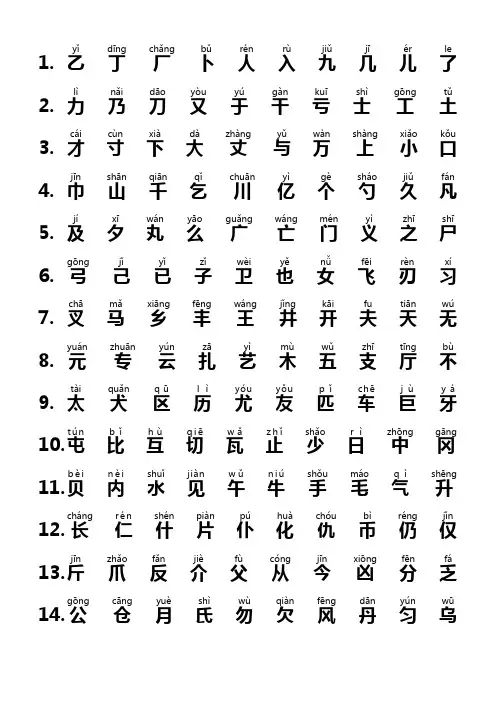 yǐ dīng chǎng bǔ rén rù jiǔ jī ér le
1. 乙 丁 厂 卜 人 入 九 几 儿 了
lì nǎi dāo yòu yú gàn kuī shì gōng tǔ
2. 力 乃 刀 又 于 干 亏 士 工 土
cái cùn xià dà zhàng yǔ wàn shàng xiǎo kǒu
3. 才 寸 下 大 丈 与 万 上 小 口
jīn shān qiān qǐ chuān yì gè sháo jiǔ fán
4. 巾 山 千 乞 川 亿 个 勺 久 凡
jí xī wán yāo guǎng wáng mén yì zhī shī
5. 及 夕 丸 么 广 亡 门 义 之 尸
gōng jǐ yǐ zǐ wèi yě nǚ fēi rèn xí
6. 弓 己 已 子 卫 也 女 飞 刃 习
chā mǎ xiāng fēng wáng jǐng kāi fu tiān wú
7. 叉 马 乡 丰 王 井 开 夫 天 无
yuán zhuān yún zā yì mù wǔ zhī tīng bù
8. 元 专 云 扎 艺 木 五 支 厅 不
tài quǎn qū lì yóu yǒu pǐ chē jù yá
9. 太 犬 区 历 尤 友 匹 车 巨 牙
tún bǐ hù qiē wǎ zhǐ shǎo rì zhōng gāng
10. 屯 比 互 切 瓦 止 少 日 中 冈
bèi nèi shuǐ jiàn wǔ niú shǒu máo qì shēng
11. 贝 内 水 见 午 牛 手 毛 气 升
cháng rén shén piàn pú huà chóu bì réng jǐn
12. 长 仁 什 片 仆 化 仇 币 仍 仅
jīn zhǎo fǎn jiè fù cóng jīn xiōng fēn fá
13. 斤 爪 反 介 父 从 今 凶 分 乏
gōng cāng yuè shì wù qiàn fēng dān yún wū
14. 公 仓 月 氏 勿 欠 风 丹 匀 乌